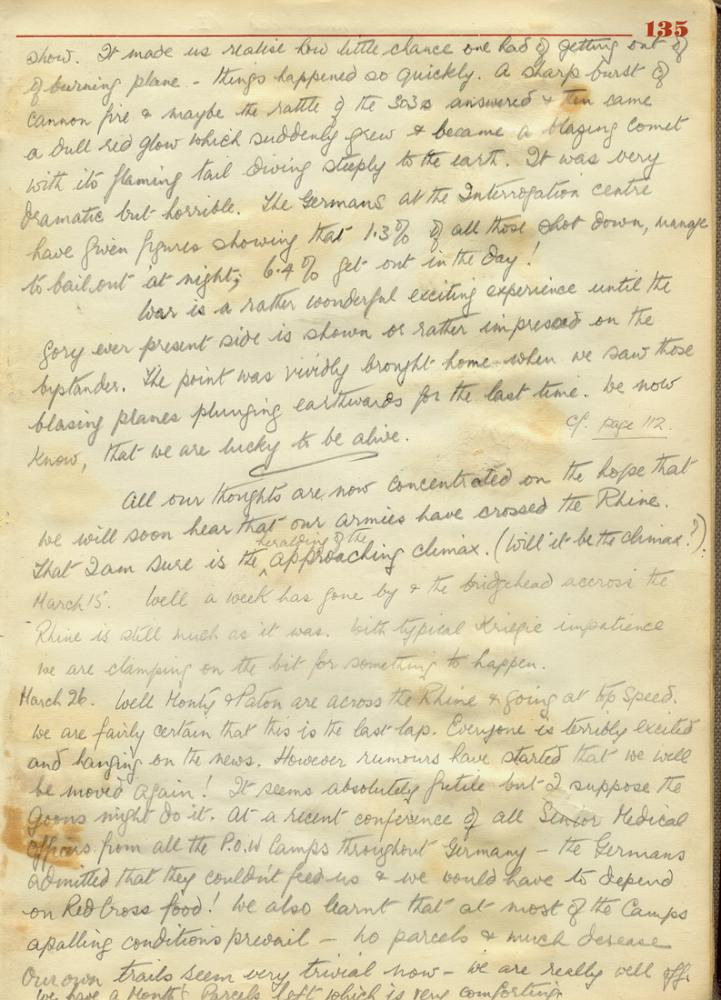 135
show. It made us realise how little chance one had of getting out of
of burning plane - things happened so quickly. A sharp burst of
cannon fire & maybe the rattle of the 303s answered & then came
a dull red glow which suddenly grew & became a blazing comet
with its flaming tail diving steeply to the earth. It was very
dramatic but horrible. The Germans at the Interrogation centre
have given figures showing that 1.3% of all those shot down, manage
to bail out at night; 6.4% get out in the day!
War is a rather wonderful exciting experience until the
gory ever present side is shown or rather impressed on the
bystander. The point was vividly brought home when we saw those
blasing planes plunging earthwards for the last time. We now
Cf. page 112.
know, that we are lucky to be alive.
All our thoughts are now concentrated on the hope that
we will soon hear that our armies have crossed the Rhine.
heralding of the
That I am sure is the approaching climax. (Will it be the climax?).
March 15. Well a week has gone by & the bridgehead accross the
Rhine is still much as it was. With typical Kriegie impatience
we are clamping on the bit for something to happen.
March 26. Well Monty & Paton are across the Rhine & going at top speed.
We are fairly certain that this is the last lap. Everyone is terribly excited
and hanging on the news. However rumours have started that we will
be moved again! It seems absolutely futile but I suppose the
Goons might do it. At a recent conference of all Senior Medical
officers from all the P.O.W Camps throughout Germany - the Germans
admitted that they couldn't feed us & we would have to depend
on Red Cross food! We also learnt that at most of the Camps
apalling conditions prevail - no parcels & much desease
Our own trails seem very trivial now - we are really well off.
We have a Month's Parcels left which is very comforting.